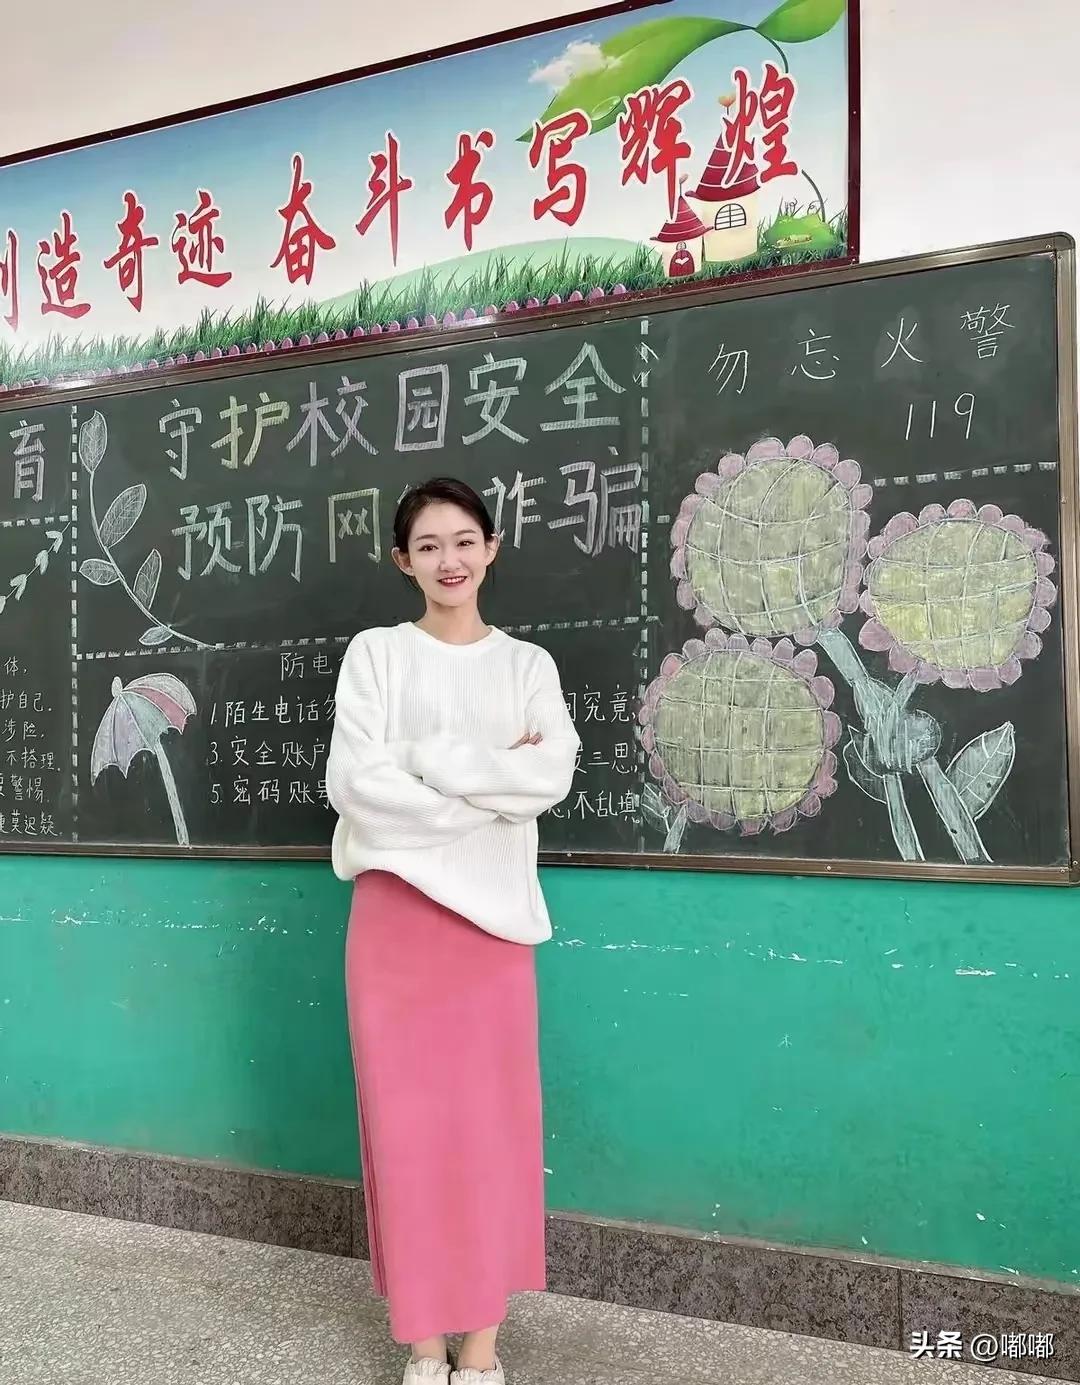 创造奇迹 奋斗书写辉煌
育
守护校园安全
预防网 诈骗
勿忘火警
119
体,
护自己.
涉险,
不搭理.
警惕.
莫迟疑.
防电
1.陌生电话勿 究竟,
3.安全账户 三思,
5.密码账号 ,不乱填
头条 @嘟嘟